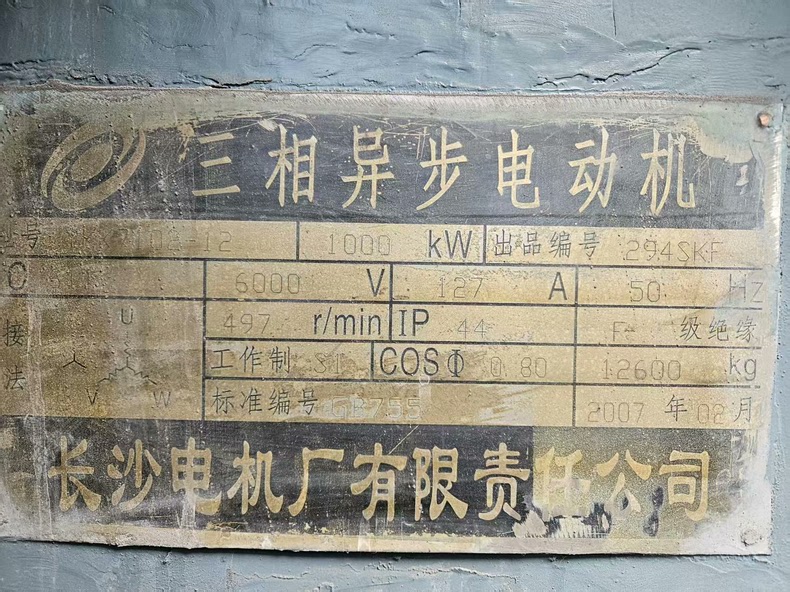 三相异步电动机
号 102-12 1000 kW 出品编号 294SKF
6000 V 127 A 50 Hz
接法 U V W
497 r/min IP 44 F 级绝缘
工作制 S1 COSΦ 0.80 12600 kg
标准编号 GB755 2007 年 02 月
长沙电机厂有限责任公司